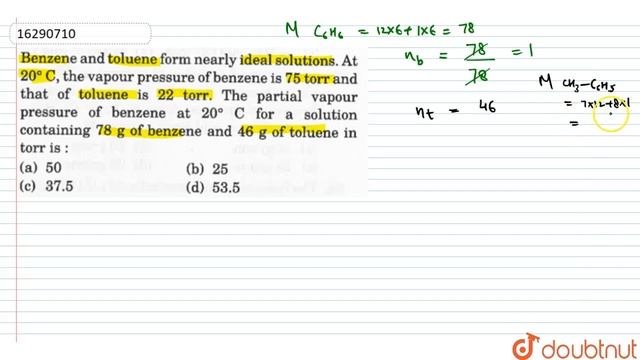 16290710
Benzene and toluene form nearly ideal solutions. At
20° C, the vapour pressure of benzene is 75 torr and
that of toluene is 22 torr. The partial vapour
pressure of benzene at 20° C for a solution
containing 78 g of benzene and 46 g of toluene in
torr is :
(a) 50 (b) 25
(c) 37.5 (d) 53.5
M C₆H₆ = 12×6 + 1×6 = 78
n_b = 78/78 = 1
M CH₃-C₆H₅
= 7×12+8×1
=
n_t = 46
doubtnut